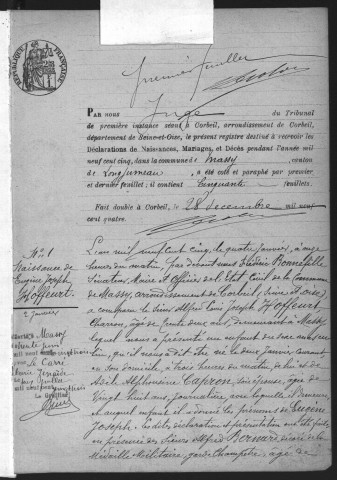 RÉPUBLIQUE FRANÇAISE
premier feuillet
PAR NOUS Juge du Tribunal
de première instance séant à Corbeil, arrondissement de Corbeil,
département de Seine-et-Oise, le présent registre destiné à recevoir les
Déclarations de Naissances, Mariages, et Décès pendant l'année mil
neuf cent cinq, dans la commune de Massy, canton
de Longjumeau, a été coté et paraphé par premier
et dernier feuillet; il contient Cinquante feuillets.
Fait double à Corbeil, le 28 décembre mil neuf
cent quatre.
No 1
Naissance de
Eugène Joseph
Hoffeurt.
2 janvier
L'an mil neuf cent cinq, le quatre janvier, à onze
heures du matin, par devant nous Frédéric Bonnefille
Maire et Officier de l'Etat Civil de la Commune
de Massy, arrondissement de Corbeil (Seine et Oise)
a comparu le sieur Alfred Louis Joseph Hoffeurt
Charron, âgé de trente deux ans, demeurant à Massy
lequel nous a présenté un enfant du sexe masculin,
qu'il nous a dit être né le deux janvier courant
en son domicile, à trois heures du matin, de lui et de
Adèle Alphonsine Capron, son épouse, âgée de
vingt huit ans, journalière avec laquelle il demeure,
et auquel enfant il a donné les prénoms de Eugène
Joseph. Les dites déclaration et présentation ont été faites
en présence des Sieurs Alfred Bernard décoré de la
Médaille Militaire, garde Champêtre, âgé de